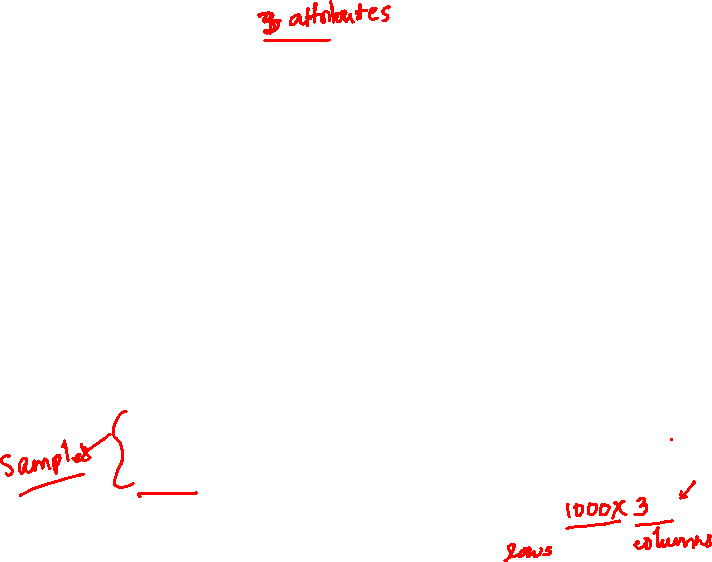 3 attributes
Samples
1000 X 3
rows columns